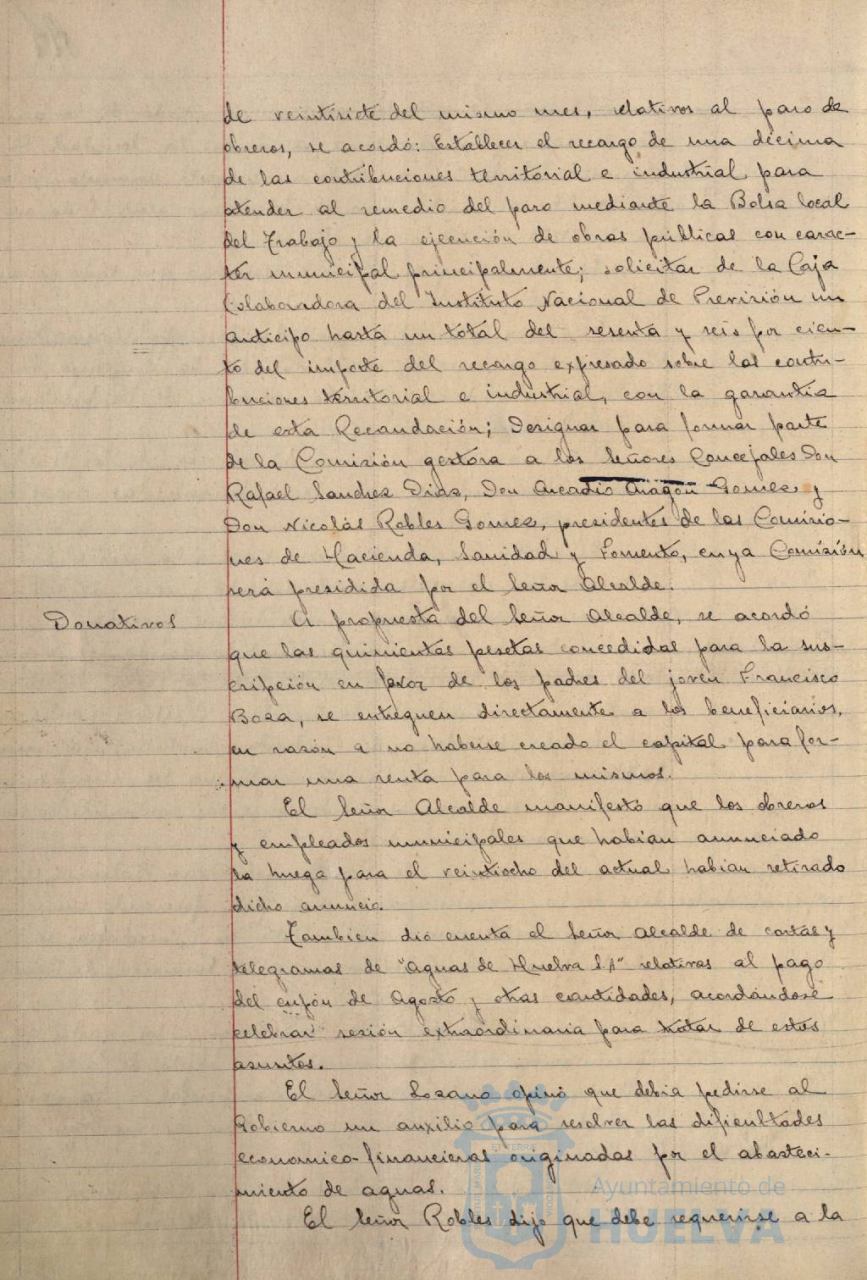 de veintisiete del mismo mes, relativos al paro de
obreros, se acordó: Establecer el recargo de una décima
de las contribuciones territorial e industrial para
atender al remedio del paro mediante la Bolsa local
del Trabajo y la ejecución de obras públicas con carac-
ter municipal principalmente; solicitar de la Caja
Colaboradora del Instituto Nacional de Previsión un
anticipo hasta un total del sesenta y seis por cien-
to del importe del recargo expresado sobre las contri-
buciones territorial e industrial, con la garantía
de esta Recaudación; Designar para formar parte
de la Comisión gestora a los Señores Concejales Don
Rafael Sanchez Diaz, Don Arcadio Aragón Gomez y
Don Nicolás Robles Gomez, presidentes de las Comisio-
nes de Hacienda, Sanidad y Fomento, cuya Comisión
será presidida por el Señor Alcalde.
Donativos
A propuesta del Señor Alcalde, se acordó
que las quinientas pesetas concedidas para la sus-
cripción en favor de los padres del joven Francisco
Boza, se entreguen directamente a los beneficiarios,
en razón a no haberse creado el capital para for-
mar una renta para los mismos.
El Señor Alcalde manifestó que los obreros
y empleados municipales que habian anunciado
la huega para el veintiocho del actual habian retirado
dicho anuncio.
Tambien dió cuenta el Señor Alcalde de cartas y
telegramas de "Aguas de Huelva S.A" relativas al pago
del cupón de Agosto y otras cantidades, acordándose
celebrar sesión extraordinaria para tratar de estos
asuntos.
El Señor Lozano opinó que debia pedirse al
Gobierno un auxilio para resolver las dificultades
economico-financieras originadas por el abasteci-
miento de aguas.
El Señor Robles dijo que debe requerirse a la
Ayuntamiento de
HUELVA